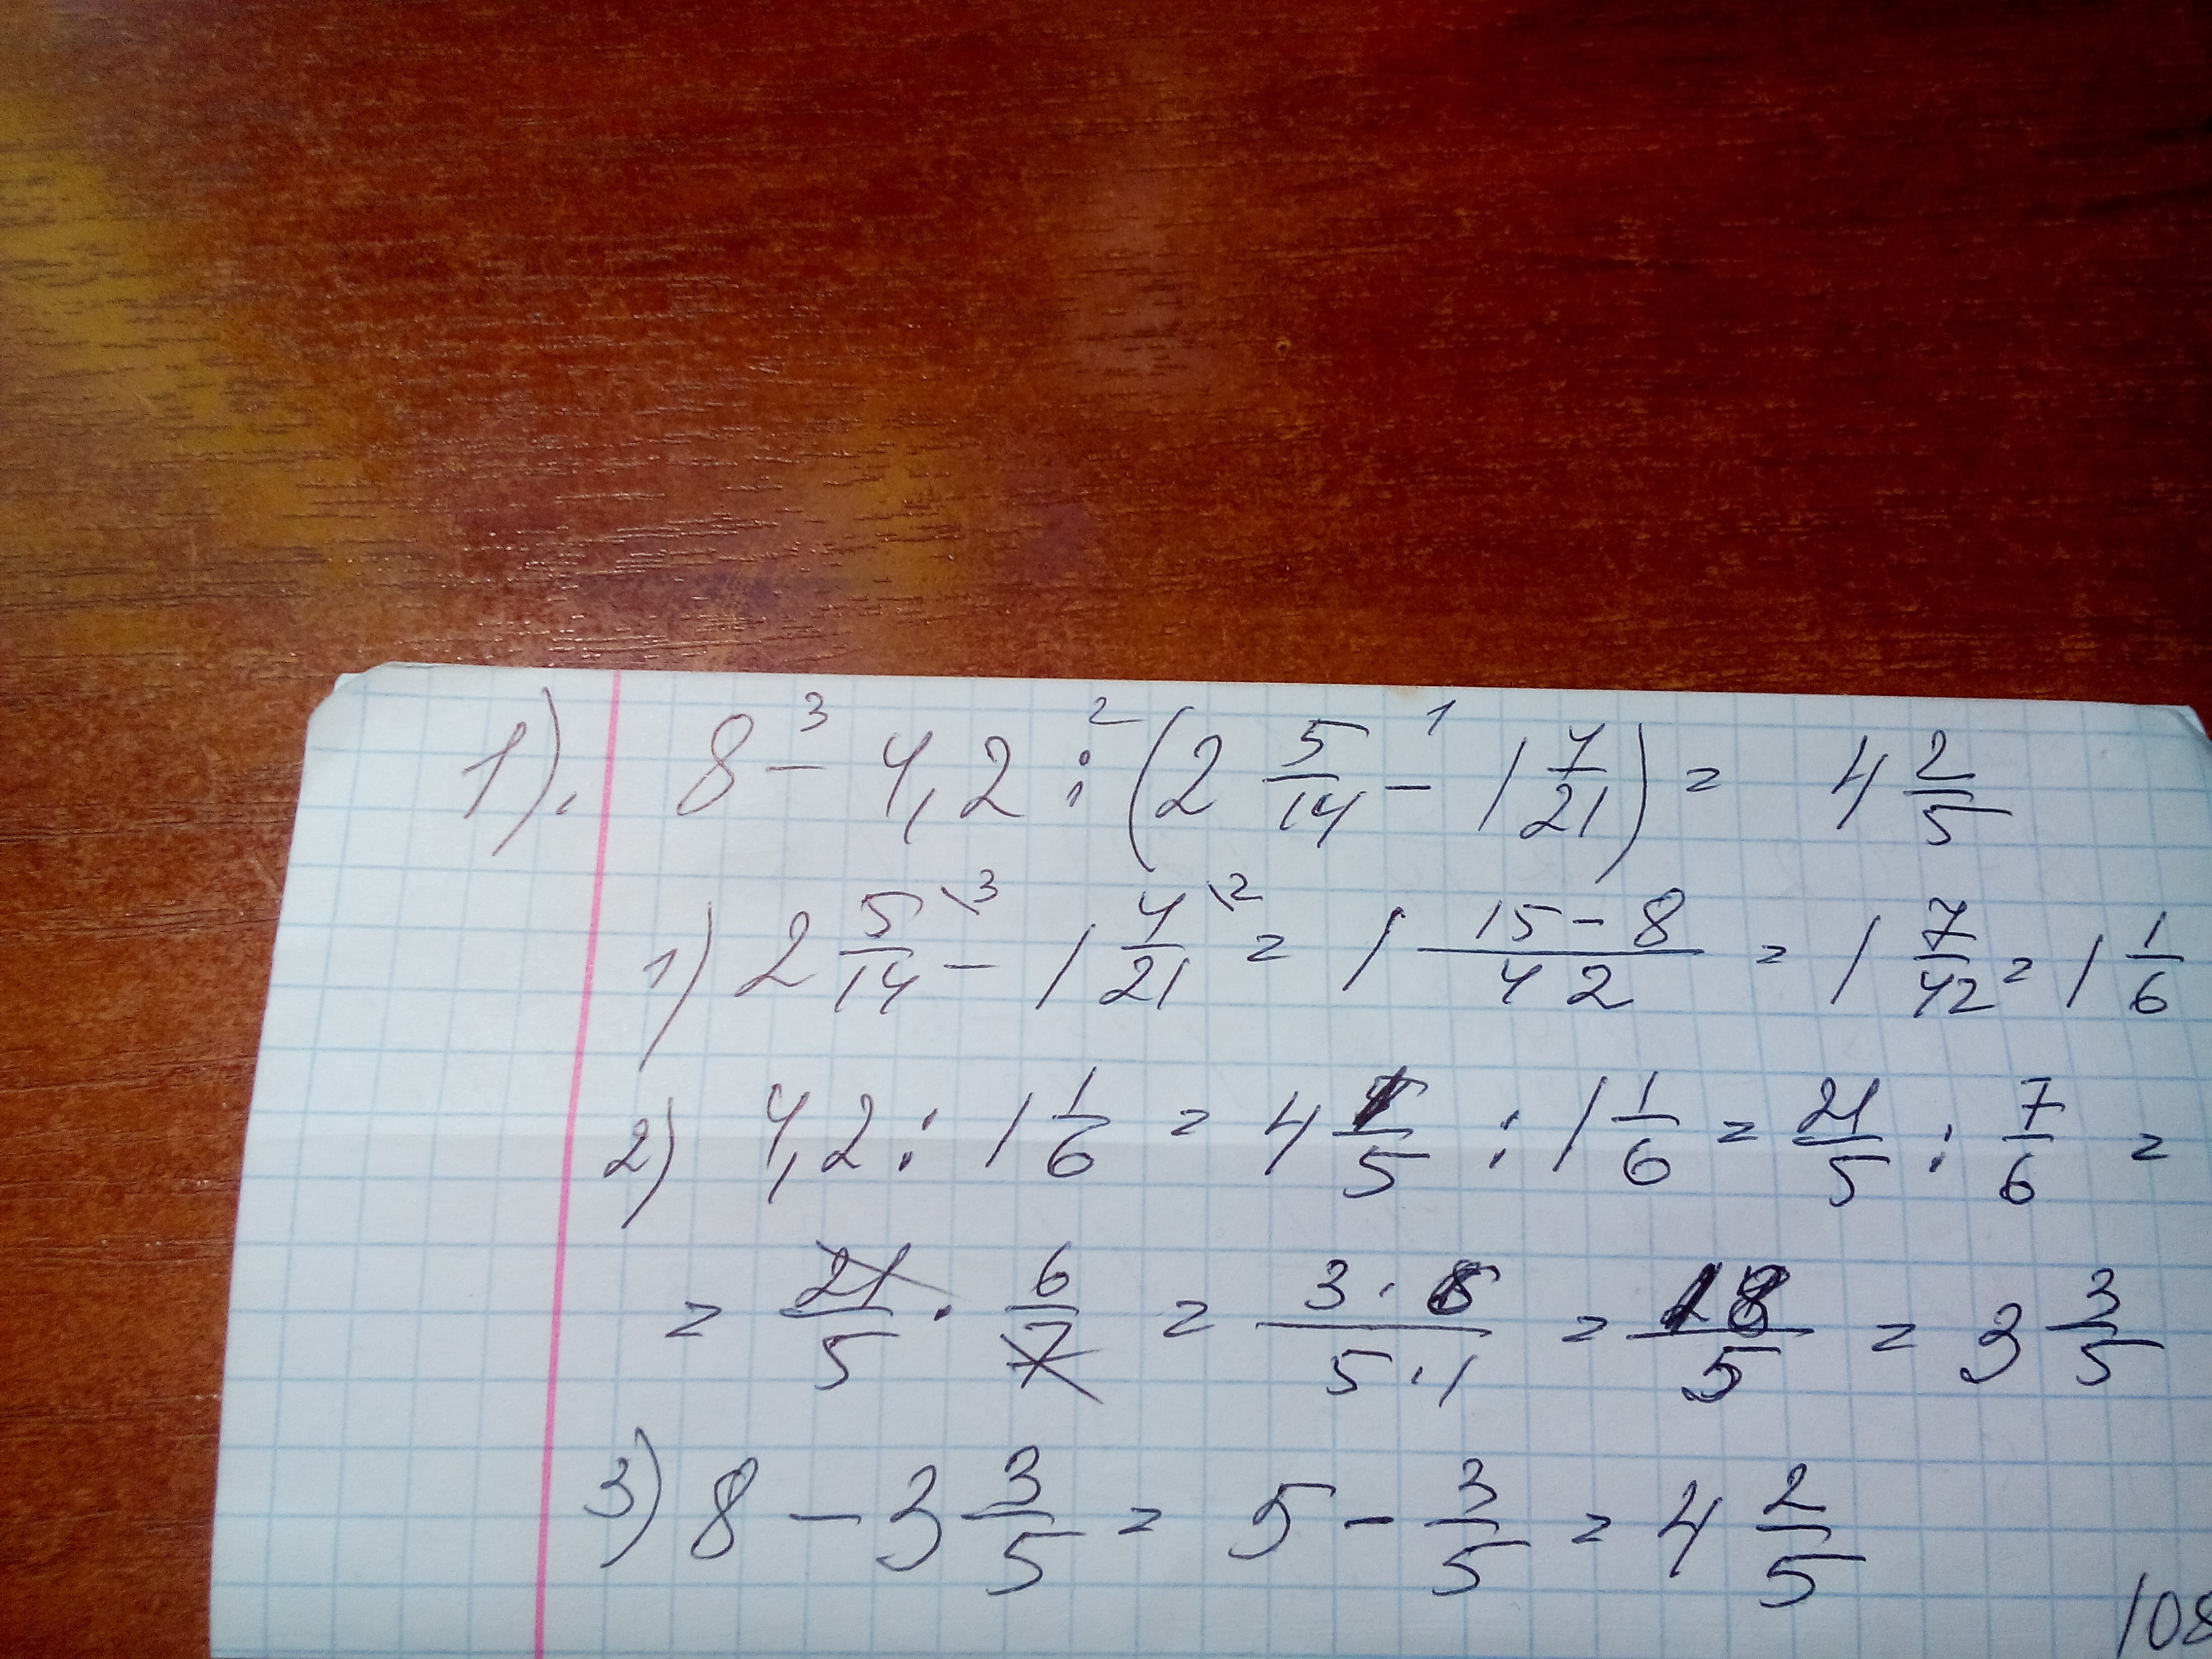 1). 8 -³ 4,2 :² (2 5/14 -¹ 1 4/21) = 4 2/5
1) 2 5/14 \3 - 1 4/21 \2 = 1 15-8/42 = 1 7/42 = 1 1/6
2) 4,2 : 1 1/6 = 4 1/5 : 1 1/6 = 21/5 : 7/6 =
= 21/5 · 6/7 = 3·6/5·1 = 18/5 = 3 3/5
3) 8 - 3 3/5 = 5 - 3/5 = 4 2/5
108